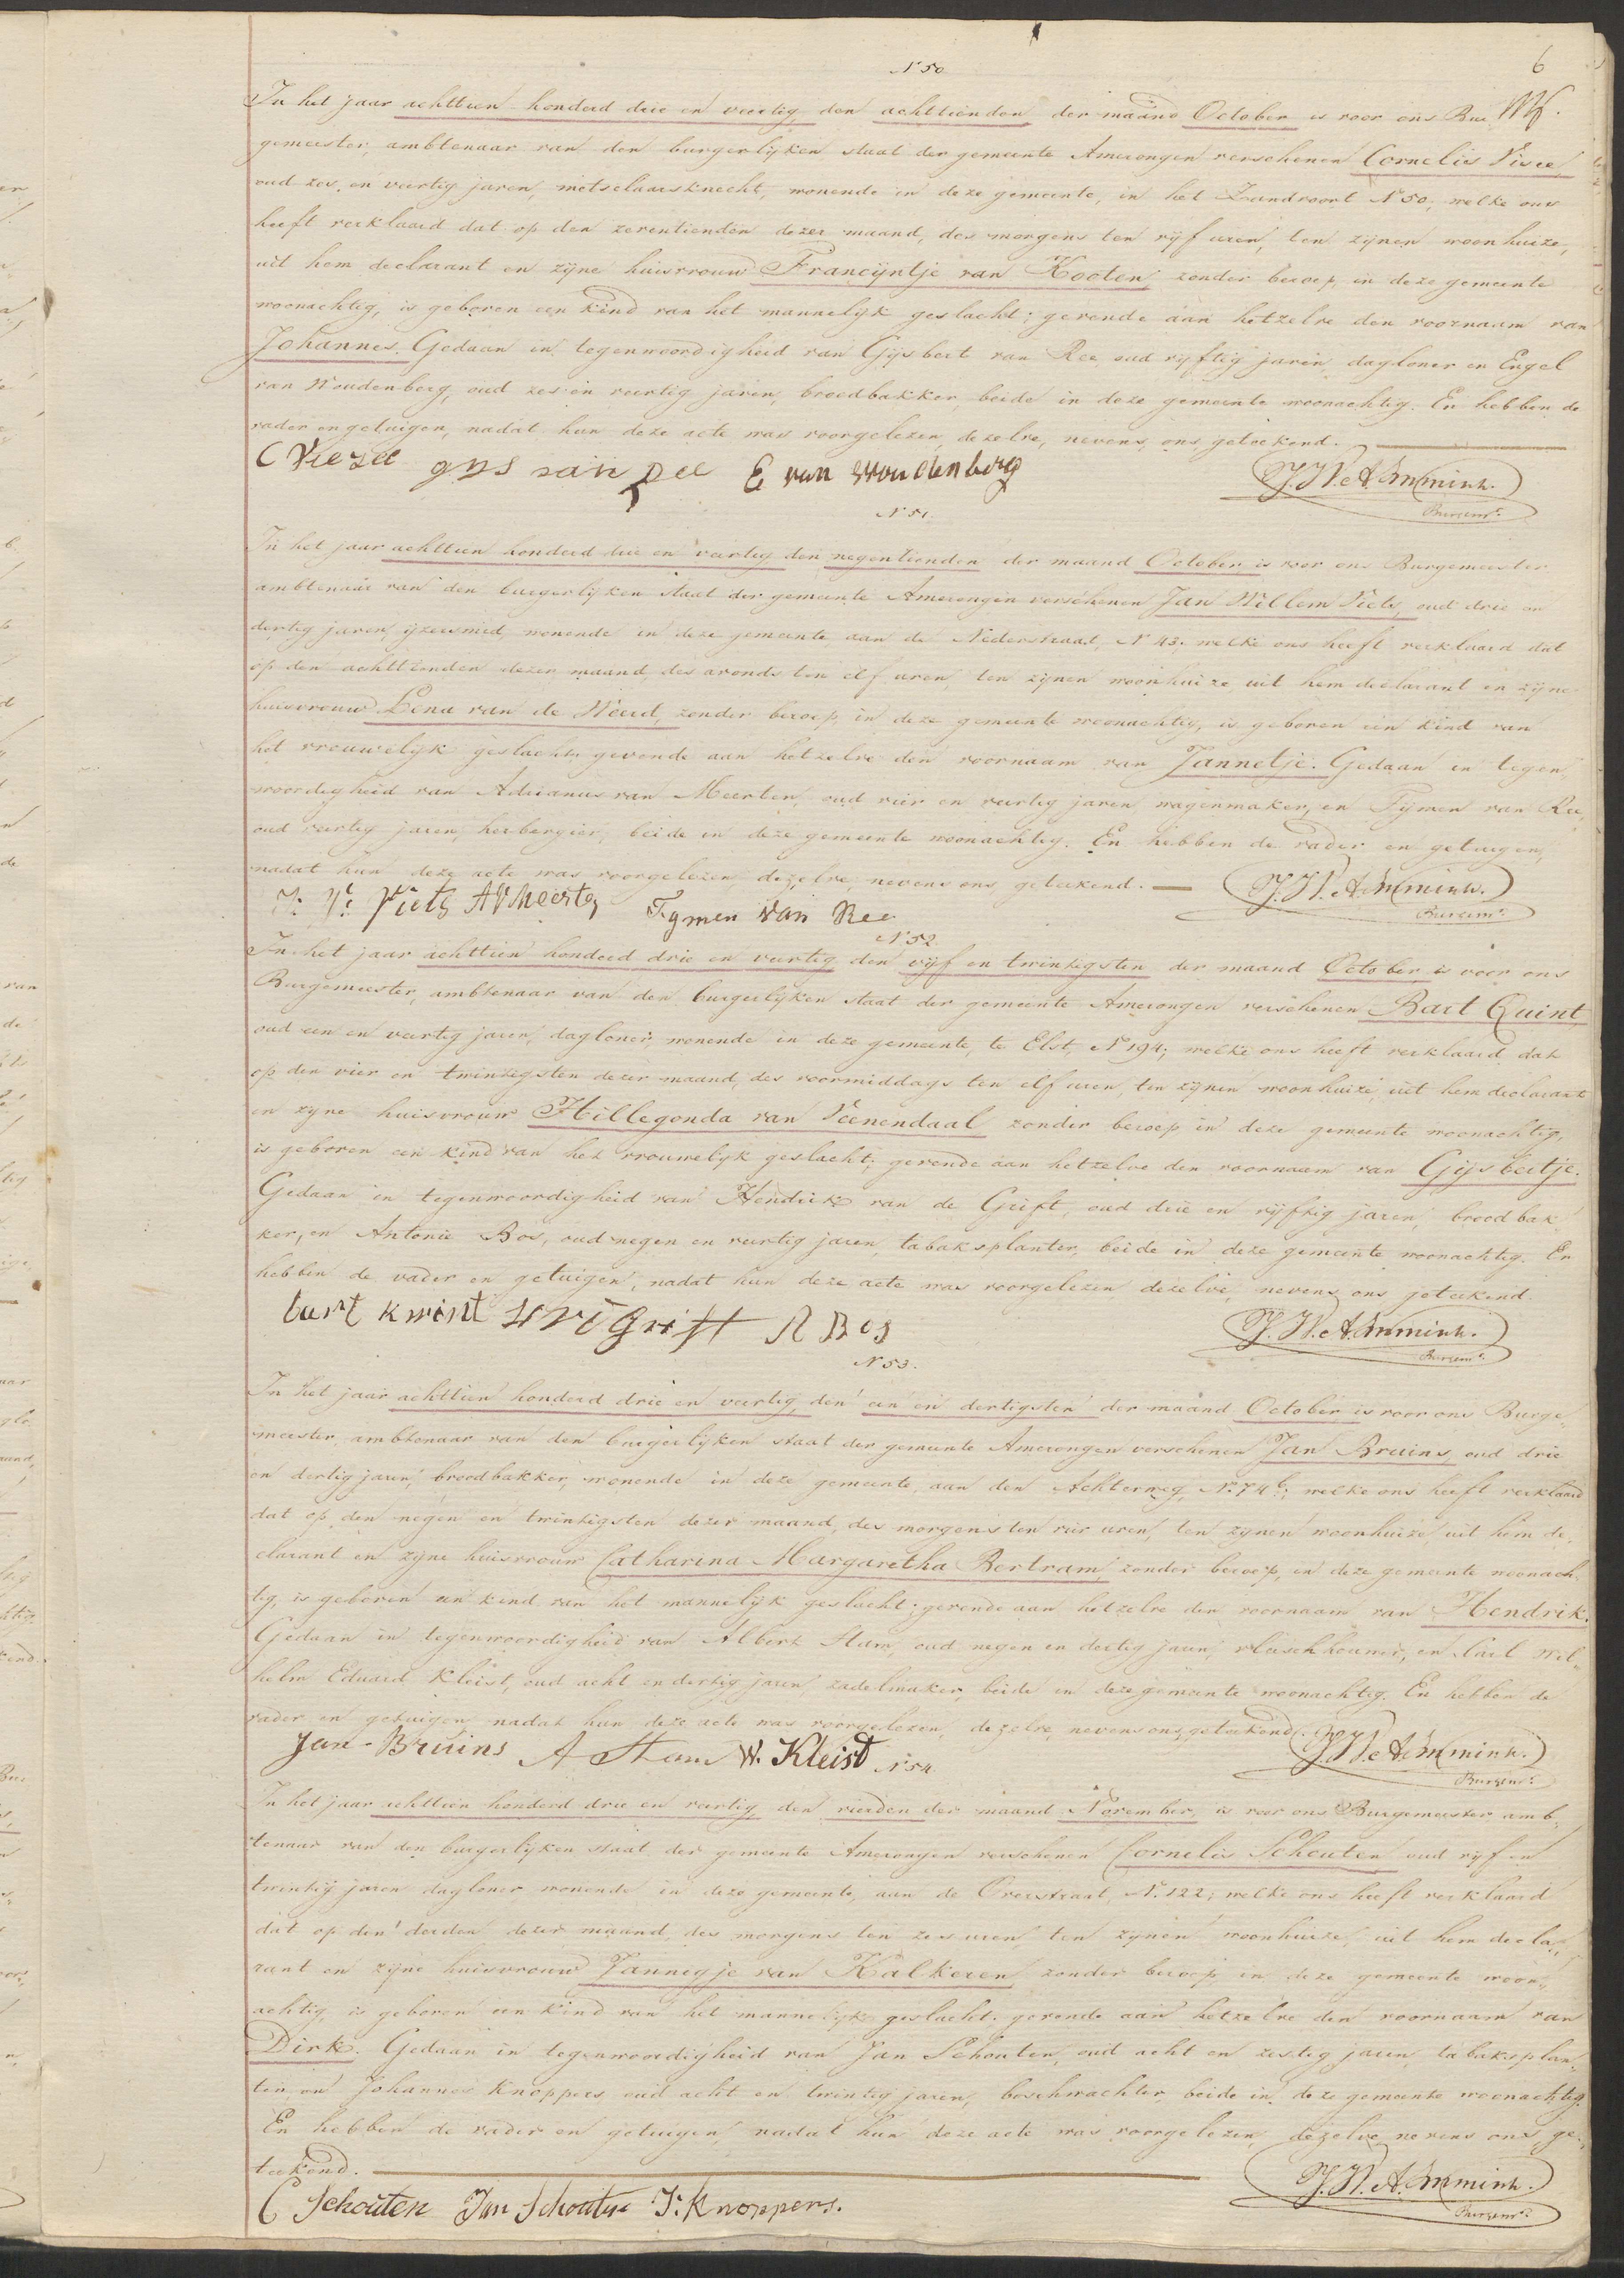 6
N 50
In het jaar achttien honderd drie en veertig, den achttienden der maand October is voor ons Bur
gemeester, ambtenaar van den burgerlijken staat der gemeente Amerongen verschenen Cornelis Visee,
oud zes en veertig jaren, metselaarsknecht, wonende in deze gemeente, in het Zandvoort N 50; welke ons
heeft verklaard dat op den zeventienden dezer maand, des morgens ten vijf uren, ten zijnen woonhuize,
uit hem declarant en zijne huisvrouw Francijntje van Kooten, zonder beroep, in deze gemeente
woonachtig, is geboren een kind van het mannelijk geslacht; gevende aan hetzelve den voornaam van
Johannes. Gedaan in tegenwoordigheid van Gijsbert van Ree, oud vijftig jaren, dagloner en Engel
van Woudenberg, oud zes en veertig jaren, broodbakker, beide in deze gemeente woonachtig. En hebben de
vader en getuigen, nadat hun deze acte was voorgelezen, dezelve, nevens ons, geteekend.
C Viezee gys van Ree E van Woudenberg J. W. A. Immink. Burgemr.
N 51.
In het jaar achttien honderd drie en veertig den negentienden der maand October is voor ons Burgemeester
ambtenaar van den burgerlijken staat der gemeente Amerongen verschenen Jan Willem Viets, oud drie en
dertig jaren, ijzersmid, wonende in deze gemeente aan de Nederstraat, N 43. welke ons heeft verklaard dat
op den achttienden dezer maand, des avonds ten elf uren, ten zijnen woonhuize, uit hem declarant en zijne
huisvrouw Lena van de Weerd, zonder beroep, in deze gemeente woonachtig, is geboren een kind van
het vrouwelijk geslacht, gevende aan hetzelve den voornaam van Jannetje. Gedaan in tegen„
woordigheid van Adrianus van Meerten, oud vier en veertig jaren, wagenmaker, en Tijmen van Ree,
oud veertig jaren, herbergier, beide in deze gemeente woonachtig. En hebben de vader en getuigen,
nadat hun deze acte was voorgelezen, dezelve, nevens ons, geteekend. J. W. A. Immink. Burgemr.
J: W: Viets AVMeerten Tymen van Ree
N 52.
In het jaar achttien honderd drie en veertig den vijf en twintigsten der maand October is voor ons
Burgemeester, ambtenaar van den burgerlijken staat der gemeente Amerongen verschenen Bart Quint
oud een en veertig jaren, dagloner, wonende in deze gemeente, te Elst, N 194; welke ons heeft verklaard dat
op den vier en twintigsten dezer maand, des voormiddags ten elf uren, ten zijnen woonhuize, uit hem declarant
en zijne huisvrouw Hillegonda van Veenendaal zonder beroep in deze gemeente woonachtig,
is geboren een kind van het vrouwelijk geslacht; gevende aan hetzelve den voornaam van Gijsbertje.
Gedaan in tegenwoordigheid van Hendrik van de Grift, oud drie en vijftig jaren, broodbak„
ker, en Antonie Bos, oud negen en veertig jaren, tabaksplanter, beide in deze gemeente woonachtig. En
hebben de vader en getuigen, nadat hun deze acte was voorgelezen dezelve, nevens ons geteekend.
bart kwint H v d Grift A Bos J. W. A. Immink. Burgemr.
N 53.
In het jaar achttien honderd drie en veertig, den een en dertigsten der maand October is voor ons Burge„
meester, ambtenaar van den burgerlijken staat der gemeente Amerongen verschenen Jan Bruins, oud drie
en dertig jaren, broodbakker, wonende in deze gemeente, aan den Achterweg, N. 74 b; welke ons heeft verklaard
dat op den negen en twintigsten dezer maand, des morgens ten vier uren, ten zijnen woonhuize, uit hem de„
clarant en zijne huisvrouw Catharina Margaretha Bertram zonder beroep, in deze gemeente woonach„
tig, is geboren een kind van het mannelijk geslacht; gevende aan hetzelve den voornaam van Hendrik.
Gedaan in tegenwoordigheid van Albert Stam, oud negen en dertig jaren, vleeschhouwer, en Carl Wil„
helm Eduard Kleist, oud acht en dertig jaren, zadelmaker, beide in deze gemeente woonachtig. En hebben de
vader en getuigen nadat hun deze acte was voorgelezen, dezelve, nevens ons, geteekend.
Jan Bruins A Stam W. Kleist J. W. A. Immink. Burgemr.
N 54
In het jaar achttien honderd drie en veertig, den vierden der maand November, is voor ons Burgemeester amb„
tenaar van den burgerlijken staat der gemeente Amerongen verschenen Cornelis Schouten oud vijf en
twintig jaren dagloner wonende in deze gemeente, aan de Overstraat, N. 122; welke ons heeft verklaard
dat op den derden dezer maand, des morgens ten zes uren, ten zijnen woonhuize, uit hem decla„
rant en zijne huisvrouw Jannegje van Kalkeren, zonder beroep in deze gemeente woon„
achtig, is geboren een kind van het mannelijk geslacht. gevende aan hetzelve den voornaam van
Dirk. Gedaan in tegenwoordigheid van Jan Schouten, oud acht en zestig jaren, tabaksplan„
ter, en Johannes Knoppers oud acht en twintig jaren, boschwachter, beide in deze gemeente woonachtig.
En hebben de vader en getuigen, nadat hun deze acte was voorgelezen, dezelve nevens ons ge„
teekend.
C Schouten Jan Schouten J. Knoppers. J. W. A. Immink. Burgemr.